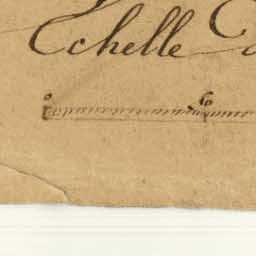 Echelle
0 10